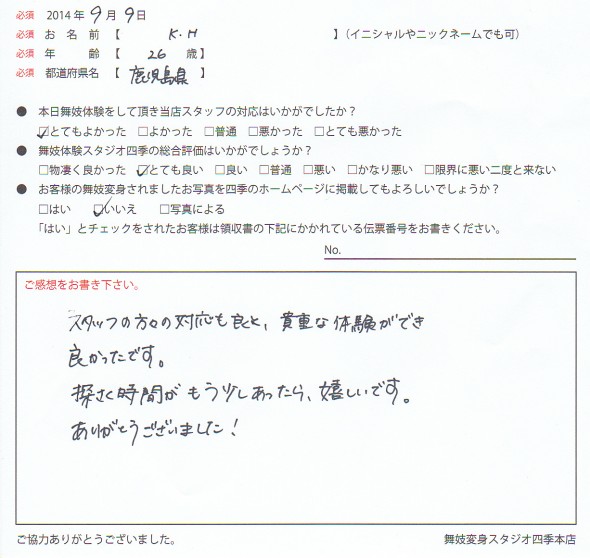 必須 2014年 9月 9日
必須 お名前 【 K.H 】(イニシャルやニックネームでも可)
必須 年齢 【 26 歳】
必須 都道府県名 【 鹿児島県 】
● 本日舞妓体験をして頂き当店スタッフの対応はいかがでしたか？
☑とてもよかった □よかった □普通 □悪かった □とても悪かった
● 舞妓体験スタジオ四季の総合評価はいかがでしょうか？
□物凄く良かった ☑とても良い □良い □普通 □悪い □かなり悪い □限界に悪い二度と来ない
● お客様の舞妓変身されましたお写真を四季のホームページに掲載してもよろしいでしょうか？
□はい ☑いいえ □写真による
「はい」とチェックをされたお客様は領収書の下記にかかれている伝票番号をお書きください。
No.
ご感想をお書き下さい。
スタッフの方々の対応も良と、貴重な体験ができ
良かったです。
探さく時間がもう少しあったら、嬉しいです。
ありがとうございました！
ご協力ありがとうございました。 舞妓変身スタジオ四季本店